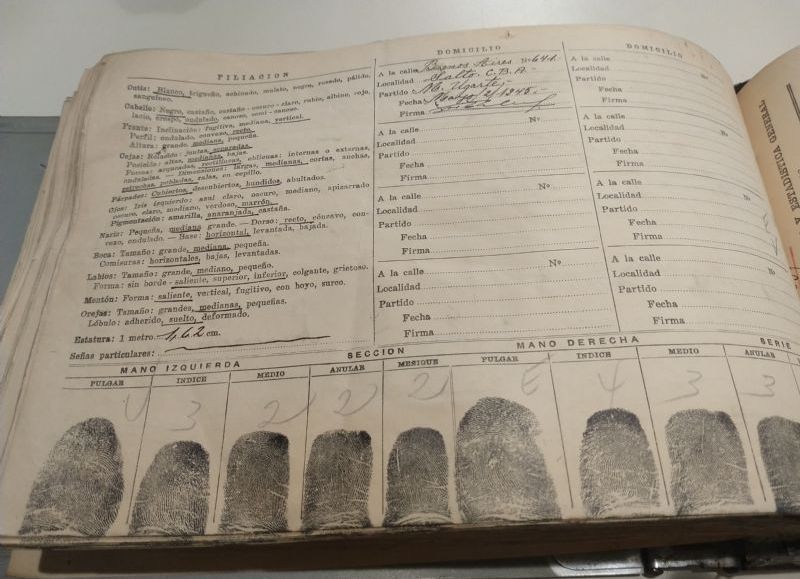 FILIACION
Cutis: Blanco, trigueño, sobinado, mulato, negro, rosado, pálido,
sanguíneo.
Cabello: Negro, castaño, castaño - oscuro - claro, rubio, albino, rojo,
lacio, crespo, ondulado, canoso, semi - canoso.
Frente: Inclinación: fugitiva, mediana, vertical.
Perfil: ondulado, convexo, recto.
Altura: grande, mediana, pequeña.
Cejas: Relación: juntas, separadas.
Posición: altas, medianas, bajas.
Forma: arqueadas, rectilíneas, oblicuas: internas o externas,
onduladas. — Dimensiones: largas, medianas, cortas, anchas,
estrechas, pobladas, ralas, en cepillo.
Párpados: Cubiertos, descubiertos, hundidos, abultados.
Ojos: Iris izquierdo: azul claro, oscuro, mediano, apizarrado
oscuro, claro, mediano, verdoso, marrón.
Pigmentación: amarilla, anaranjada, castaña.
Nariz: Pequeña, mediana, grande. — Dorso: recto, cóncavo, con-
vexo, ondulado. — Base: horizontal, levantada, bajada.
Boca: Tamaño: grande, mediana, pequeña.
Comisuras: horizontales, bajas, levantadas.
Labios: Tamaño: grande, mediano, pequeño.
Forma: sin borde - saliente, superior, inferior, colgante, grietoso.
Mentón: Forma: saliente, vertical, fugitivo, con hoyo, surco.
Orejas: Tamaño: grandes, medianas, pequeñas.
Lóbulo: adherido, suelto, deformado.
Estatura: 1 metro 1,62 cm.
Señas particulares:
DOMICILIO
A la calle Buenos Aires Nº 641
Localidad Salto. C.B.A.
Partido M. Ugarte
Fecha 1945
Firma
A la calle Nº
Localidad
Partido
Fecha
Firma
A la calle Nº
Localidad
Partido
Fecha
Firma
A la calle Nº
Localidad
Partido
Fecha
Firma
DOMICILIO
A la calle
Localidad
Partido
Fecha
Firma
A la calle
Localidad
Partido
Fecha
Firma
A la calle
Localidad
Partido
Fecha
Firma
A la calle
Localidad Nº
Partido
Fecha
Firma
Y ESTADISTICA GENERAL
MANO IZQUIERDA SECCION MANO DERECHA SERIE
PULGAR INDICE MEDIO ANULAR MEÑIQUE PULGAR INDICE MEDIO ANULAR
V 3 2 2 2 E 4 3 3